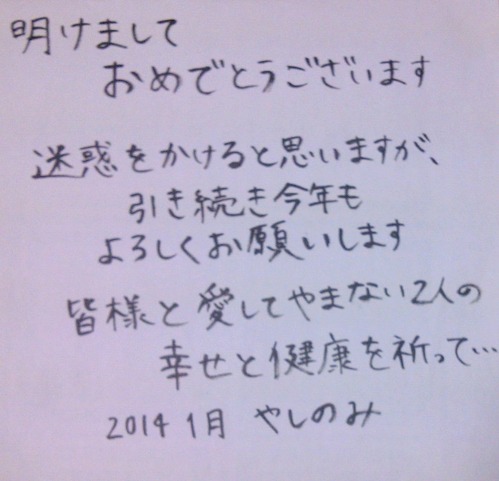 明けまして
おめでとうございます
迷惑をかけると思いますが、
引き続き今年も
よろしくお願いします
皆様と愛してやまない2人の
幸せと健康を祈って…
2014 1月 やしのみ